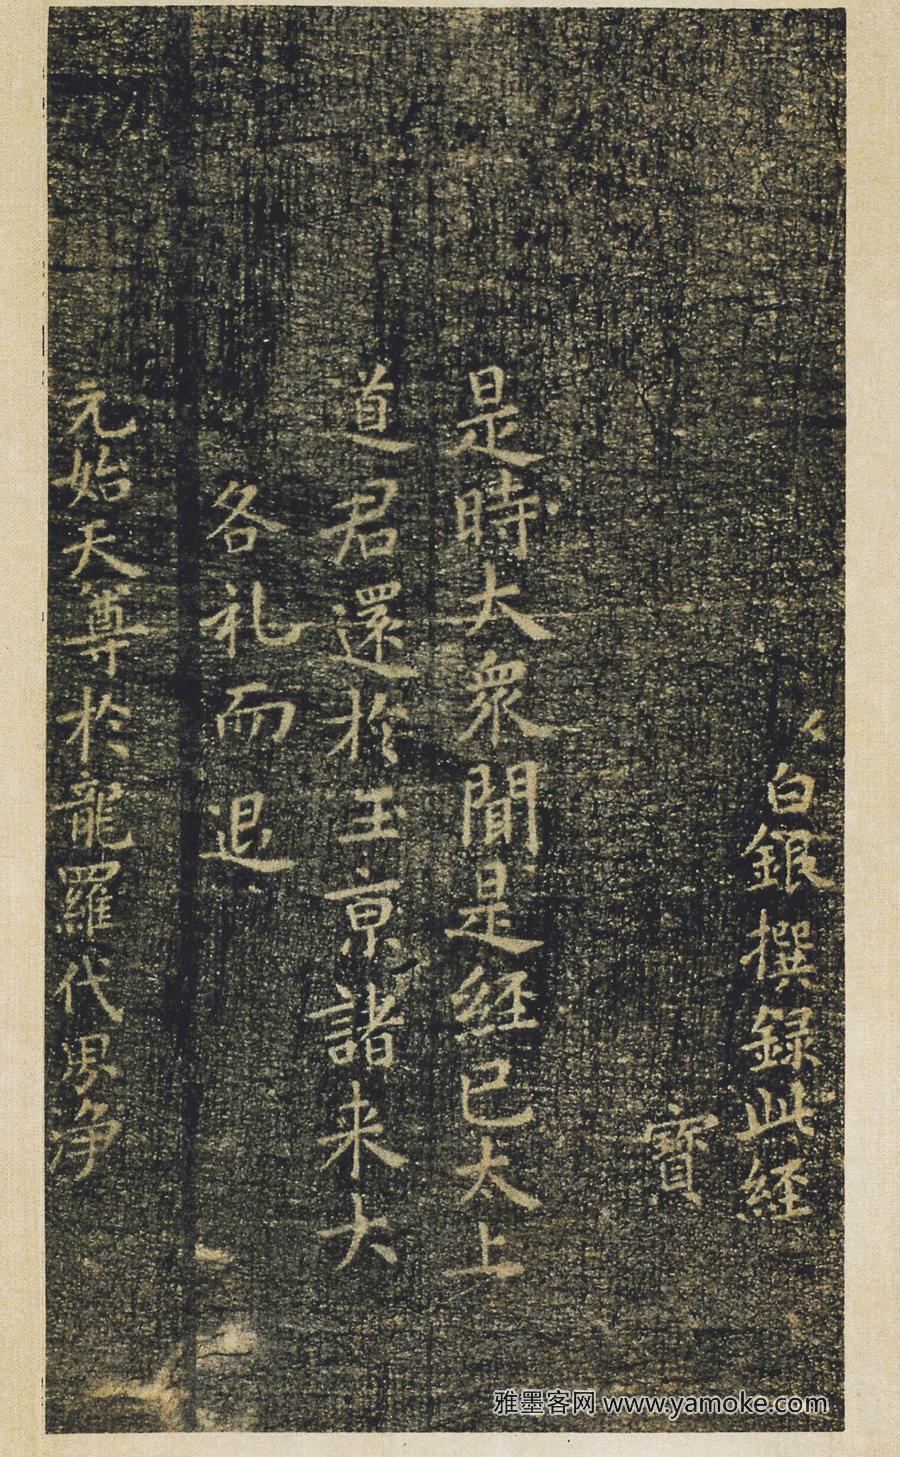 白銀撰録此經
寶
是時大衆聞是經已太上
道君還於玉京諸来大
各礼而退
元始天尊於龍羅代界净
雅墨客网 www.yamoke.com